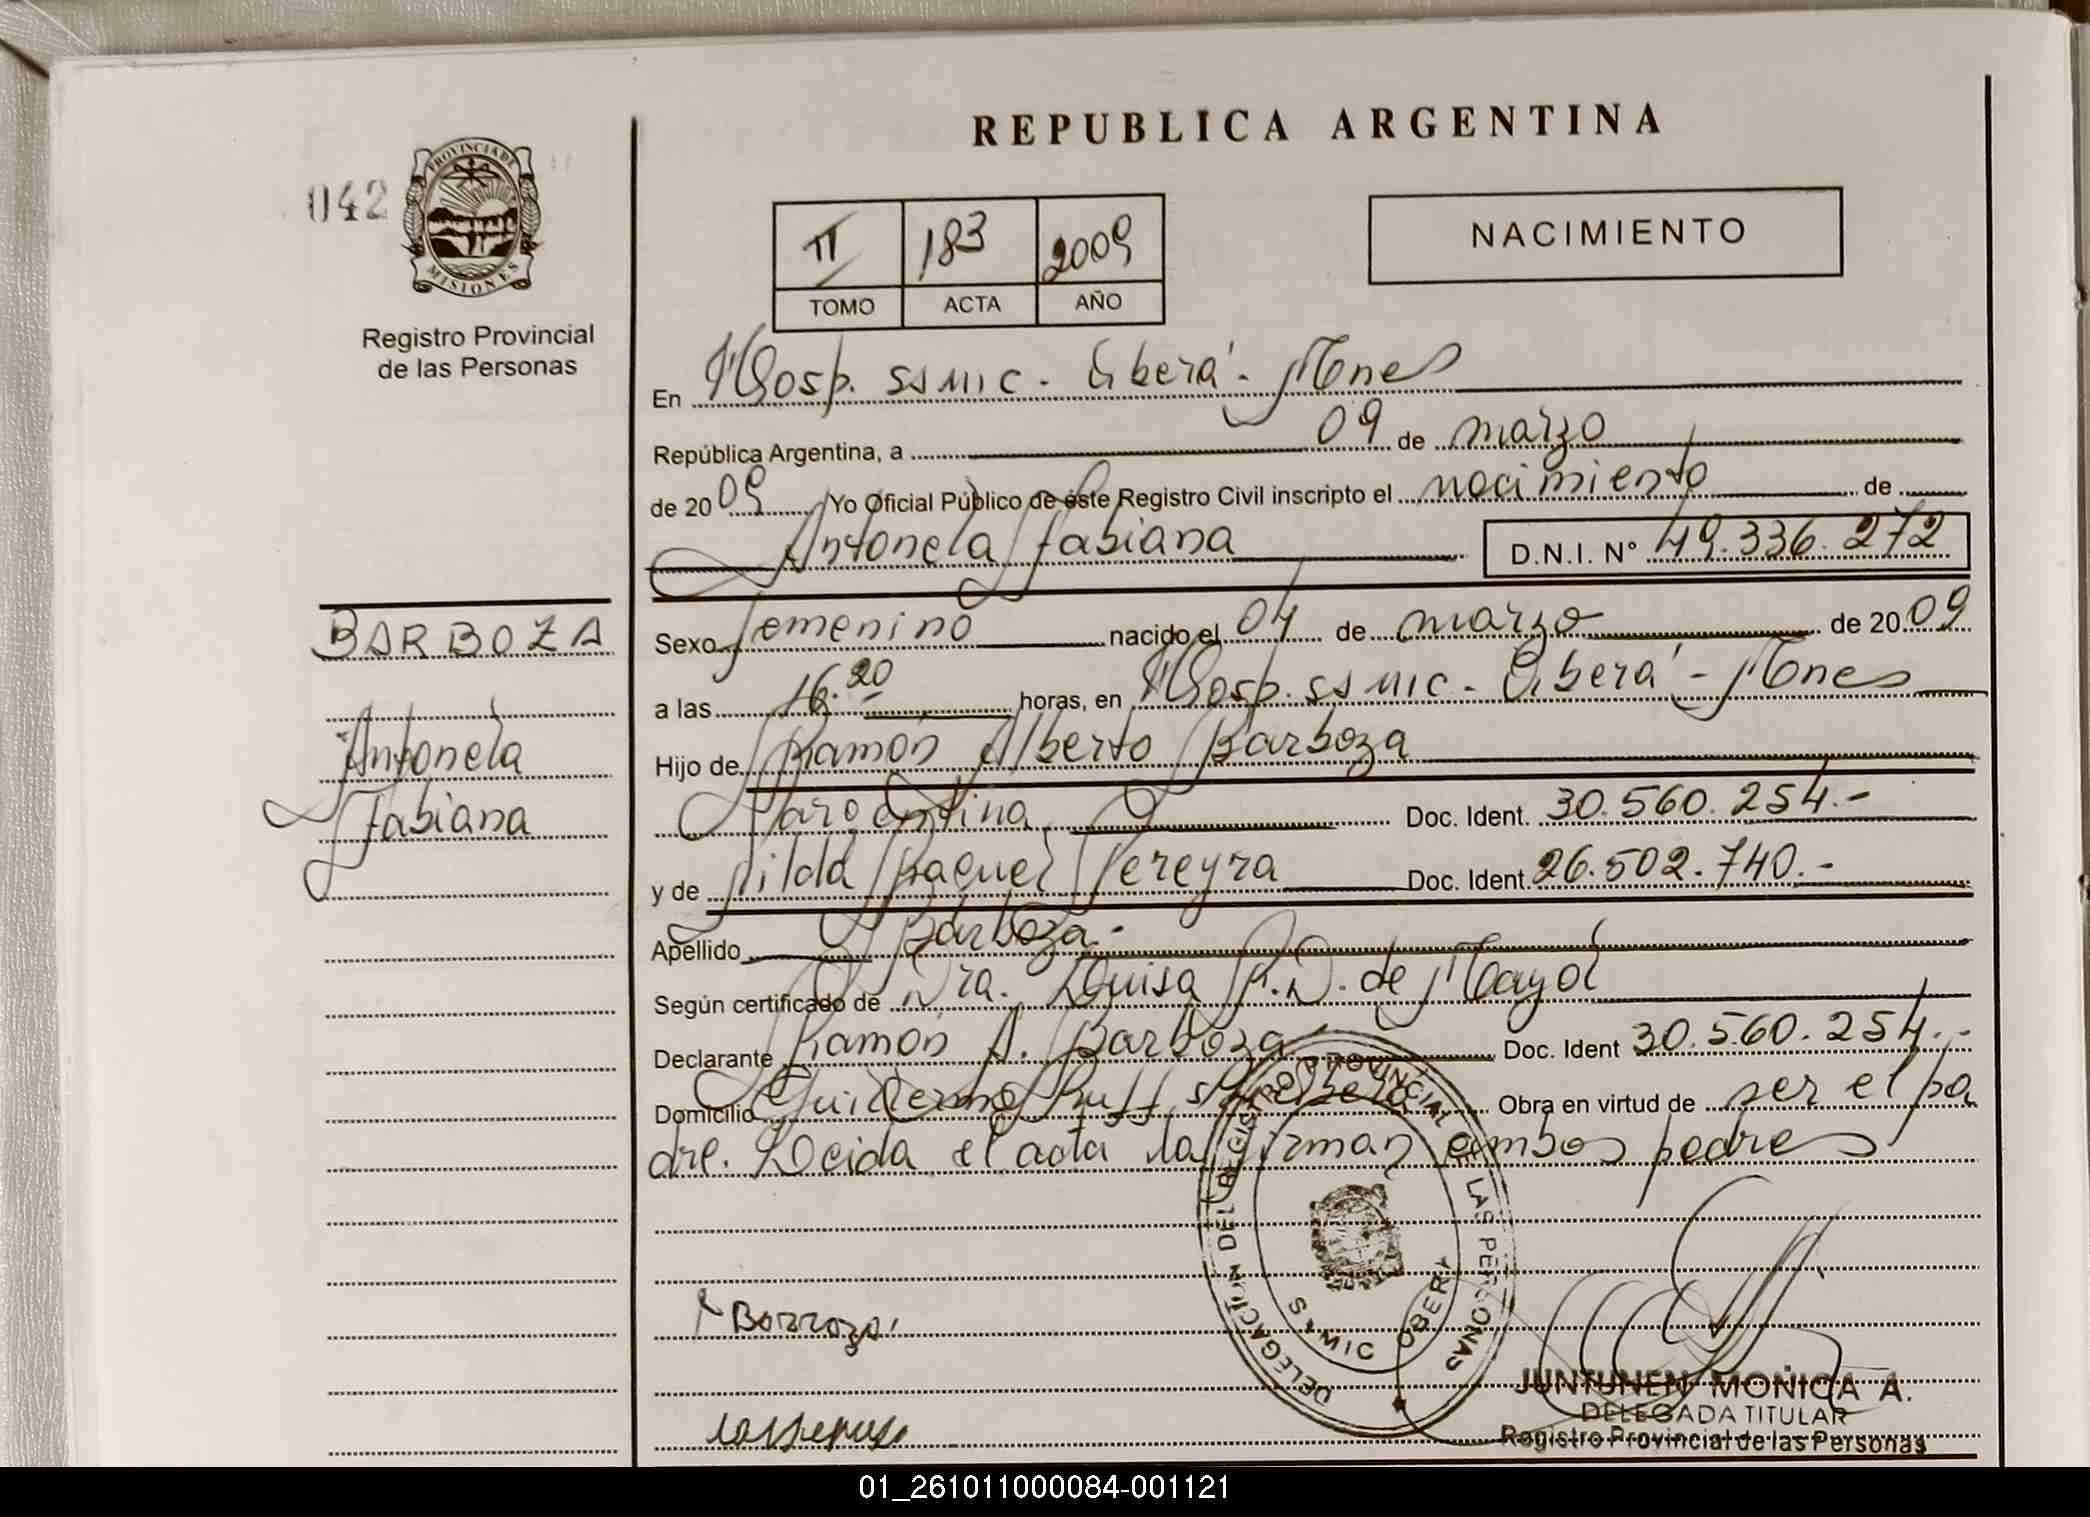 REPUBLICA ARGENTINA
042
PROVINCIA DE
MISIONES
Registro Provincial
de las Personas
II 183 2009
TOMO ACTA AÑO
NACIMIENTO
En Hosp. SSMIC - Oberá - Mnes
República Argentina, a 09 de marzo
de 2009 Yo Oficial Público de éste Registro Civil inscripto el nacimiento de
Antonela Fabiana D.N.I. N° 49.336.272
BARBOZA
Antonela
Fabiana
Sexo femenino nacido el 04 de marzo de 2009
a las 16.20 horas, en Hosp. SSMIC - Oberá - Mnes
Hijo de Ramón Alberto Barboza
Argentina Doc. Ident. 30.560.254.-
y de Nilda Raquel Pereyra Doc. Ident. 26.502.740.-
Apellido Barboza.-
Según certificado de Dra. Luisa R. D. de Mayol
Declarante Ramón A. Barboza Doc. Ident 30.560.254.-
Domicilio Guillermo Obra en virtud de ser el pa
dre. Leida el acta la firman ambos padres
DELEGACION DEL REGISTRO PROVINCIAL DE LAS PERSONAS
SAMIC OBERA
JUNTUNEN MONICA A.
DELEGADA TITULAR
Registro Provincial de las Personas
01_261011000084-001121